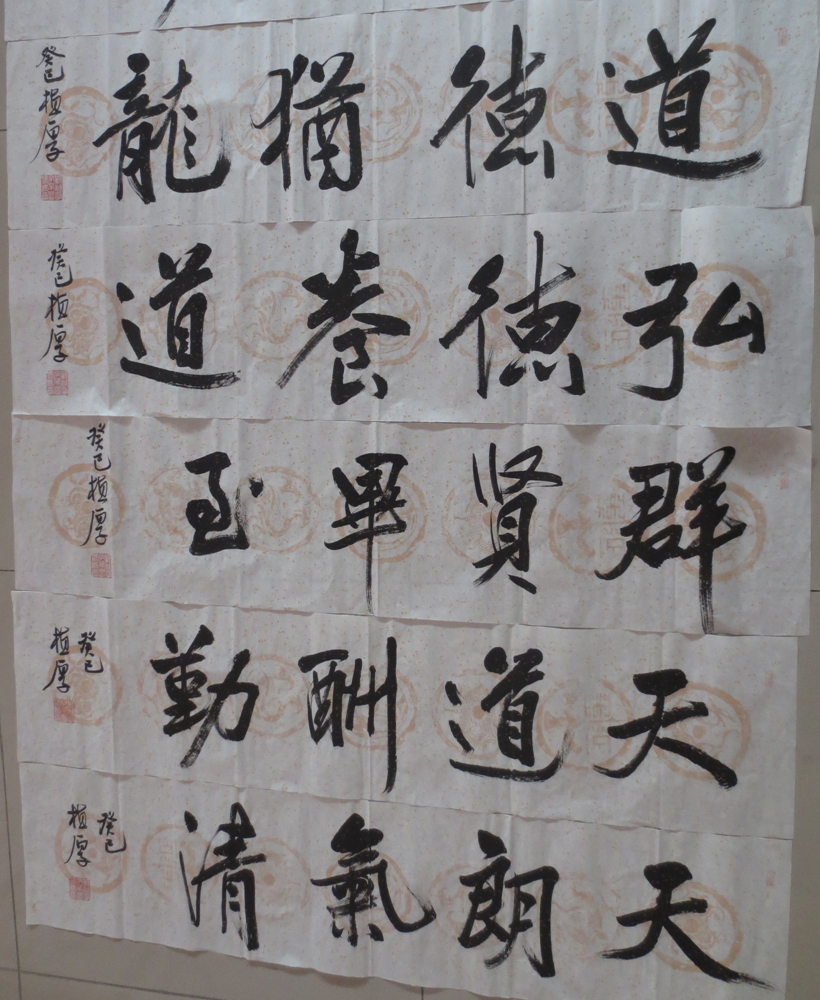 道德猶龍
癸巳植厚
弘德養道
癸巳植厚
群贤畢至
癸巳植厚
天道酬勤
癸巳
植厚
天朗氣清
癸巳
植厚